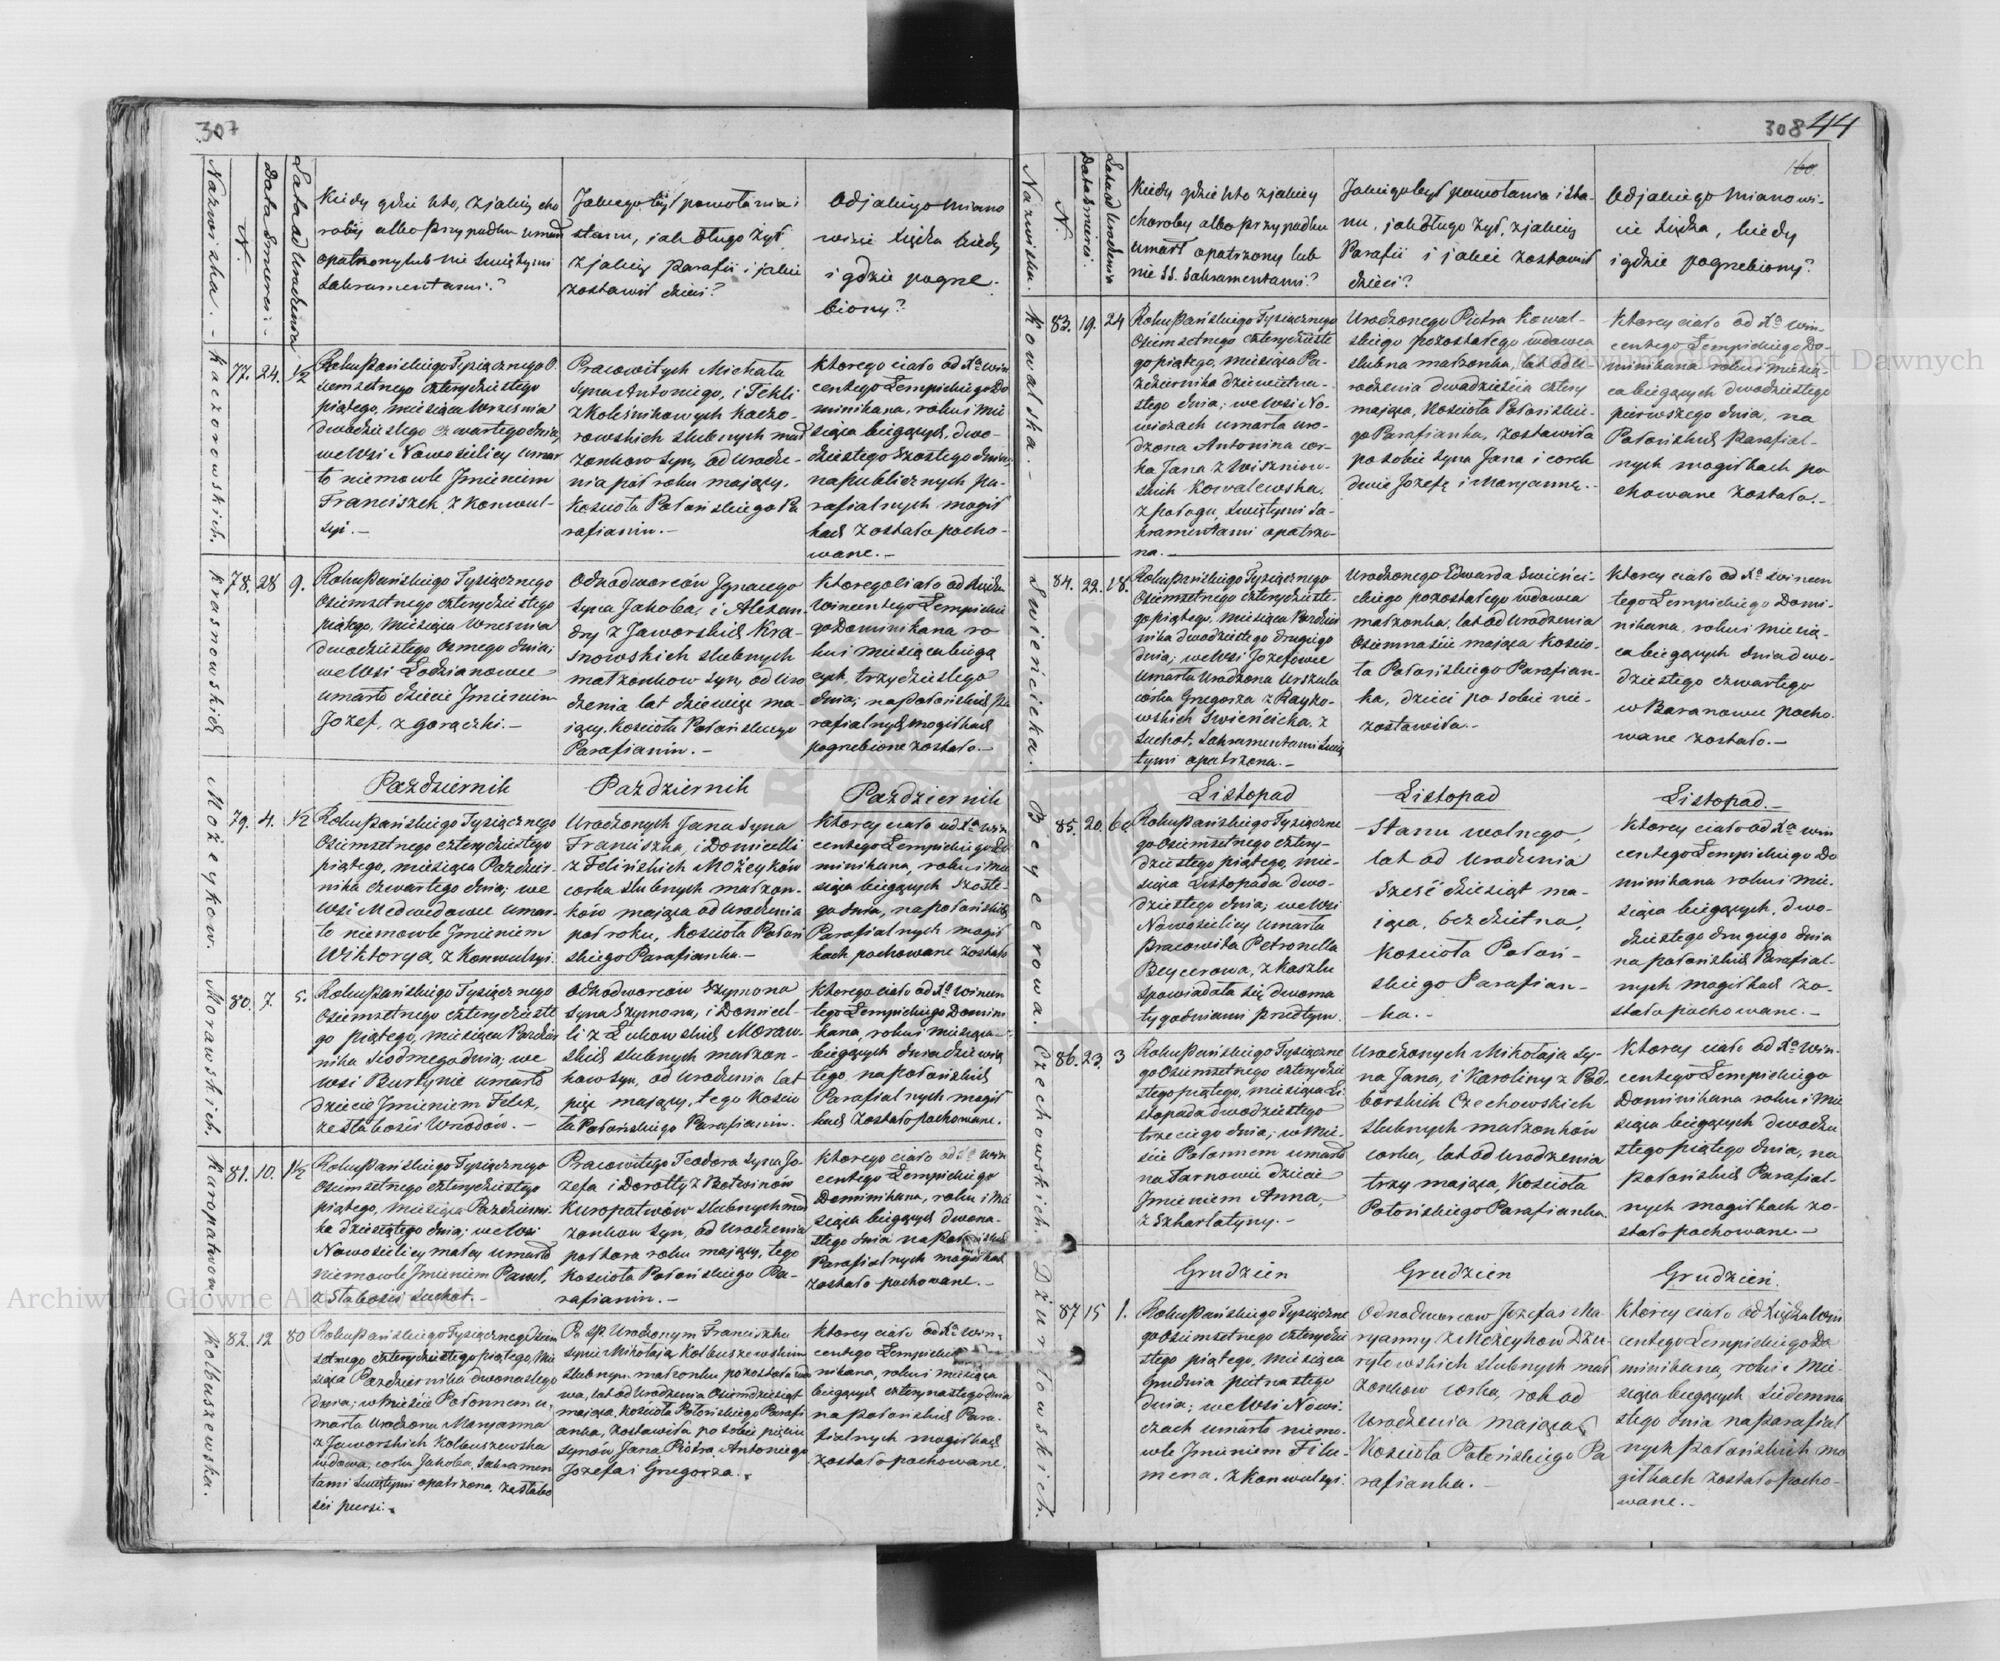 307
Nazwiska.
N.
Data Śmierci.
Lata od Urodzenia
Kiedy gdzie kto, z jakiey cho
roby albo przypadku umarł
opatrzony lub nie Swiętymi
Sakramentami?
Jakiego był powołania i
stanu, jak długo żył
z jakiey parafii i jakie
zostawił dzieci?
Od jakiego miano
wicie Xiędza kiedy
i gdzie pogrze-
biony?
Kaczorowskich.
77. 24. 1/2
Roku Pańskiego Tysiącznego O.
siemsetnego czterydziestego
piątego, miesiąca Wrzesnia
dwudziestego czwartego dnia,
we Wsi Nowosielicy umar
ło niemowle Jmieniem
Franciszek, z Konwul-
syi. —
Pracowitych Michała
Syna Antoniego, i Tekli
z Kolesnikowych Kaczo-
rowskich slubnych mał
żonkow Syn, od urodze-
nia pół roku maiący,
Kościoła Połońskiego Pa
rafianin. —
Ktorego ciało od Xa Win
centego Lempickiego Do
minikana, roku i mie
siąca bieżących, dwu-
dziestego szostego dnia,
na publicznych pa-
rafialnych mogił
kach zostało pocho-
wane. —
Krasnowskich
78. 28 9.
Roku Pańskiego Tysiącznego
Osiemsetnego czterydziestego
piątego, miesiąca Wrzesnia
dwudziestego Osmego dnia;
we Wsi Łodzianowce
umarło dziecie Jmieniem
Jozef, z gorączki. —
Odnodworców Jgnacego
Syna Jakoba, i Alexan-
dry z Jaworskich Kra-
snowskich slubnych
małżonkow Syn, od uro
dzenia lat dziewięć ma-
iący, Kościoła Połońskiego
Parafianin. —
Ktorego ciało od Xiędza
Wincentego Lempickie
go Dominikana ro
ku i miesiąca bieżą
cych, trzydziestego
dnia; na Połońskich Pa
rafialnych mogiłkach
pogrzebione zostało. —
Październik
Październik
Październik
Możeykow.
79. 4. 1/2
Roku Pańskiego Tysiącznego
Osiemsetnego czterydziestego
piątego, miesiąca Paździer-
nika czwartego dnia; we
Wsi Medwedowce umar-
ło niemowle Jmieniem
Wiktorya, z Konwulsyi.
Urodzonych Jana Syna
Franciszka, i Domicelli
z Felińskich Możeyków
corka slubnych małżon-
ków maiąca od urodzenia
poł roku, Kościoła Połoń
skiego Parafianka. —
Ktorey ciało od Xa Win
centego Lempickiego Do
minikana, roku i mie
siąca bieżących szoste-
go dnia, na Połońskich
Parafialnych mogił
kach pochowane zostało
Morawskich.
80. 7. 5.
Roku Pańskiego Tysiącznego
Osiemsetnego czterydzieste
go piątego, miesiąca Paździer
nika siodmego dnia; we
Wsi Burtynie umarło
dziecie Jmieniem Felix,
ze słabości Wrzodów. —
Odnodworców Szymona
Syna Szymona, i Domicel-
li z Łukowskich Moraw-
skich slubnych małżon-
kow Syn, od urodzenia lat
pięć maiący, tego Kościo
ła Połońskiego Parafianin.
Ktorego ciało od Xa Wincen
tego Lempickiego Domini
kana, roku i miesiąca
bieżących dnia dziewią
tego, na Połońskich
Parafialnych mogił
kach zostało pochowane.
Kuropatwow.
81. 10. 1 1/2
Roku Pańskiego Tysiącznego
Osiemsetnego czterydziestego
piątego, miesiąca Październi
ka dziesiątego dnia; we Wsi
Nowosielicy małey umarło
niemowle Jmieniem Paweł,
z słabości suchot. —
Pracowitego Teodora Syna Jo
zefa i Dorotty z Botwinów
Kuropatwów slubnych mał
żonkow Syn, od urodzenia
połtora roku maiący, tego
Kościoła Połońskiego Pa-
rafianin. —
Ktorego ciało od Xa Win
centego Lempickiego
Dominikana, roku i mie
siąca bieżących dwuna-
stego dnia na Połońskich
Parafialnych mogiłkach
zostało pochowane. —
Kolbuszewska.
82. 12 80
Roku Pańskiego Tysiącznego Osiem
setnego czterydziestego piątego, mie
siąca Października dwunastego
dnia; w mieście Połonnem u,
marła Urodzona Maryanna
z Jaworskich Kolbuszewska
wdowa, corka Jakoba, Sakramen
tami Swiętymi opatrzona, ze słabo
ści piersi.
Po ŚP. Urodzonym Franciszku
synie Mikołaja Kolbuszewskim
slubnym małżonku pozostała wdo
wa, lat od urodzenia Osiemdziesiąt
maiąca, Kościoła Połońskiego Parafi
anka, zostawiła po sobie pięciu
synów Jana Piotra Antoniego
Jozefa i Gregorza.
Ktorey ciało od Xa Win-
centego Lempickiego Domi
nikana, roku i miesiąca
bieżących czternastego dnia
na Połońskich Para-
fialnych mogiłkach
zostało pochowane.
308 44
160.
Nazwiska.
N.
Data śmierci.
Lata od Urodzenia
Kiedy gdzie kto z jakiey
choroby albo przypadku
umarł opatrzony lub
nie SS. Sakramentami?
Jakiego był powołania i sta-
nu, jak długo żył, z jakiey
Parafii i jakie zostawił
dzieci?
Od jakiego mianowi-
cie Xiędza, kiedy
i gdzie pogrzebiony?
Kowalska.
83. 19. 24
Roku Pańskiego Tysiącznego
Osiemsetnego czterydzieste
go piątego, miesiąca Pa-
ździernika dziewiętna-
stego dnia; we Wsi No-
wiczach umarła uro-
dzona Antonina cor-
ka Jana z Wiszniow-
skich Kowalewska.
z połogu, Swiętymi Sa-
kramentami opatrzo-
na. —
Urodzonego Piotra Kowal-
skiego pozostałego wdowca
slubna małżonka, lat od u-
rodzenia dwadzieścia cztery
maiąca, Kościoła Połońskie-
go Parafianka, zostawiła
po sobie syna Jana i corek
dwie Jozefę i Maryannę. —
Ktorey ciało od Xa Win-
centego Lempickiego Do-
minikana roku i miesią-
ca bieżących dwudziestego
pierwszego dnia, na
Połońskich parafial-
nych mogiłkach po
chowane zostało. —
Swiencicka.
84. 22. 18.
Roku Pańskiego Tysiącznego
Osiemsetnego czterydzieste-
go piątego, miesiąca Paździer
nika dwudziestego drugiego
dnia; we Wsi Jozefowce
umarła Urodzona Urszula
corka Gregorza z Rayko-
wskich Swiencicka, z
suchot, Sakramentami Swię
tymi opatrzona. —
Urodzonego Edwarda Swienci-
ckiego pozostałego wdowca
małżonka, lat od urodzenia
Osiemnaście maiąca Kościo-
ła Połońskiego Parafian-
ka, dzieci po sobie nie-
zostawiła. —
Ktorey ciało od Xa Wincen
tego Lempickiego Domi-
nikana, roku i miesią-
ca bieżących dnia dwu-
dziestego czwartego
w Baranowce pocho-
wane zostało. —
Listopad
Listopad
Listopad. —
Beycerowa.
85. 20. 60
Roku Pańskiego Tysiączne
go Osiemsetnego cztery-
dziestego piątego, mie-
siąca Listopada dwu-
dziestego dnia; we Wsi
Nowosielicy umarła
Pracowita Petronella
Beycerowa, z Kaszlu
spowiadała się dwoma
tygodniami przedtym.
Stanu wolnego,
lat od urodzenia
sześć dziesiąt ma-
iąca, bezdzietna,
Kościoła Połoń-
skiego Parafian-
ka. —
Ktorey ciało od Xa Win
centego Lempickiego Do
minikana roku i mie-
siąca bieżących, dwu-
dziestego drugiego dnia
na Połońskich Parafial-
nych mogiłkach zo-
stało pochowane. —
Czechowskich
86. 23. 3
Roku Pańskiego Tysiączne
go Osiemsetnego czterydzie
stego piątego, miesiąca Li
stopada dwudziestego
trzeciego dnia; w mie-
ście Połonnem umarło
na Tarnowie dziecie
Jmieniem Anna,
z Szkarlatyny. —
Urodzonych Mikołaja Sy-
na Jana, i Karoliny z Pod-
borskich Czechowskich
slubnych małżonków
corka, lat od urodzenia
trzy maiąca, Kościoła
Połońskiego Parafianka.
Ktorey ciało od Xa Win-
centego Lempickiego
Dominikana roku i mie
siąca bieżących dwudzie
stego piątego dnia, na
Połońskich Parafial-
nych mogiłkach zo-
stało pochowane. —
Grudzien
Grudzien
Grudzień.
Dziurłowskich.
87 15 1.
Roku Pańskiego Tysiączne
go Osiemsetnego czterydzie
stego piątego, miesiąca
Grudnia piętnastego
dnia; we Wsi Nowi-
czach umarło niemo-
wle Jmieniem Filu-
mena, z Konwulsyi.
Odnodworcow Jozefa i Ma-
ryanny z Możeykow Dziu-
ryłowskich slubnych mał
żonkow corka, rok od
urodzenia maiąca,
Kościoła Połońskiego Pa
rafianka. —
Ktorey ciało od Xiędza Win
centego Lempickiego Do
minikana, roku i mie-
siąca bieżących, siedemna
stego dnia na parafial
nych Połońskich mo
giłkach zostało pocho-
wane. —
Archiwum Główne Akt Dawnych
Archiwum Główne Akt Dawnych